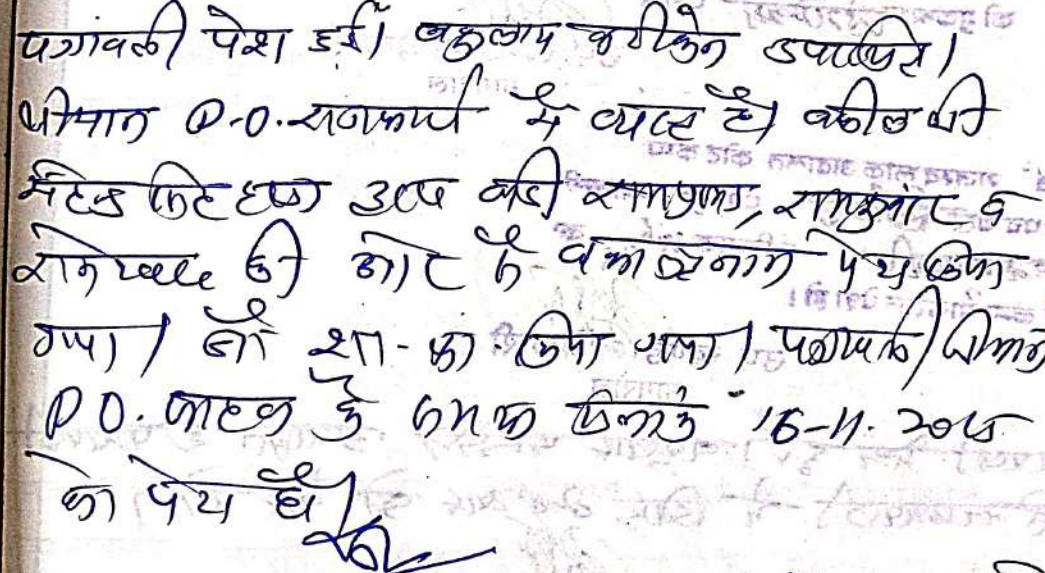 पत्रावली पेश हुई। वकुलाय फरीकेन उपस्थित।
श्रीमान P.O. राजकार्य में व्यस्त है। वकील श्री
सिंह द्वारा वादी व
की ओर से वकालतनामा पेश किया
गया। जो शा.-फा. किया गया। पत्रावली श्रीमान
P.O. साहब के समक्ष दिनांक 16-11-2015
को पेश हो।